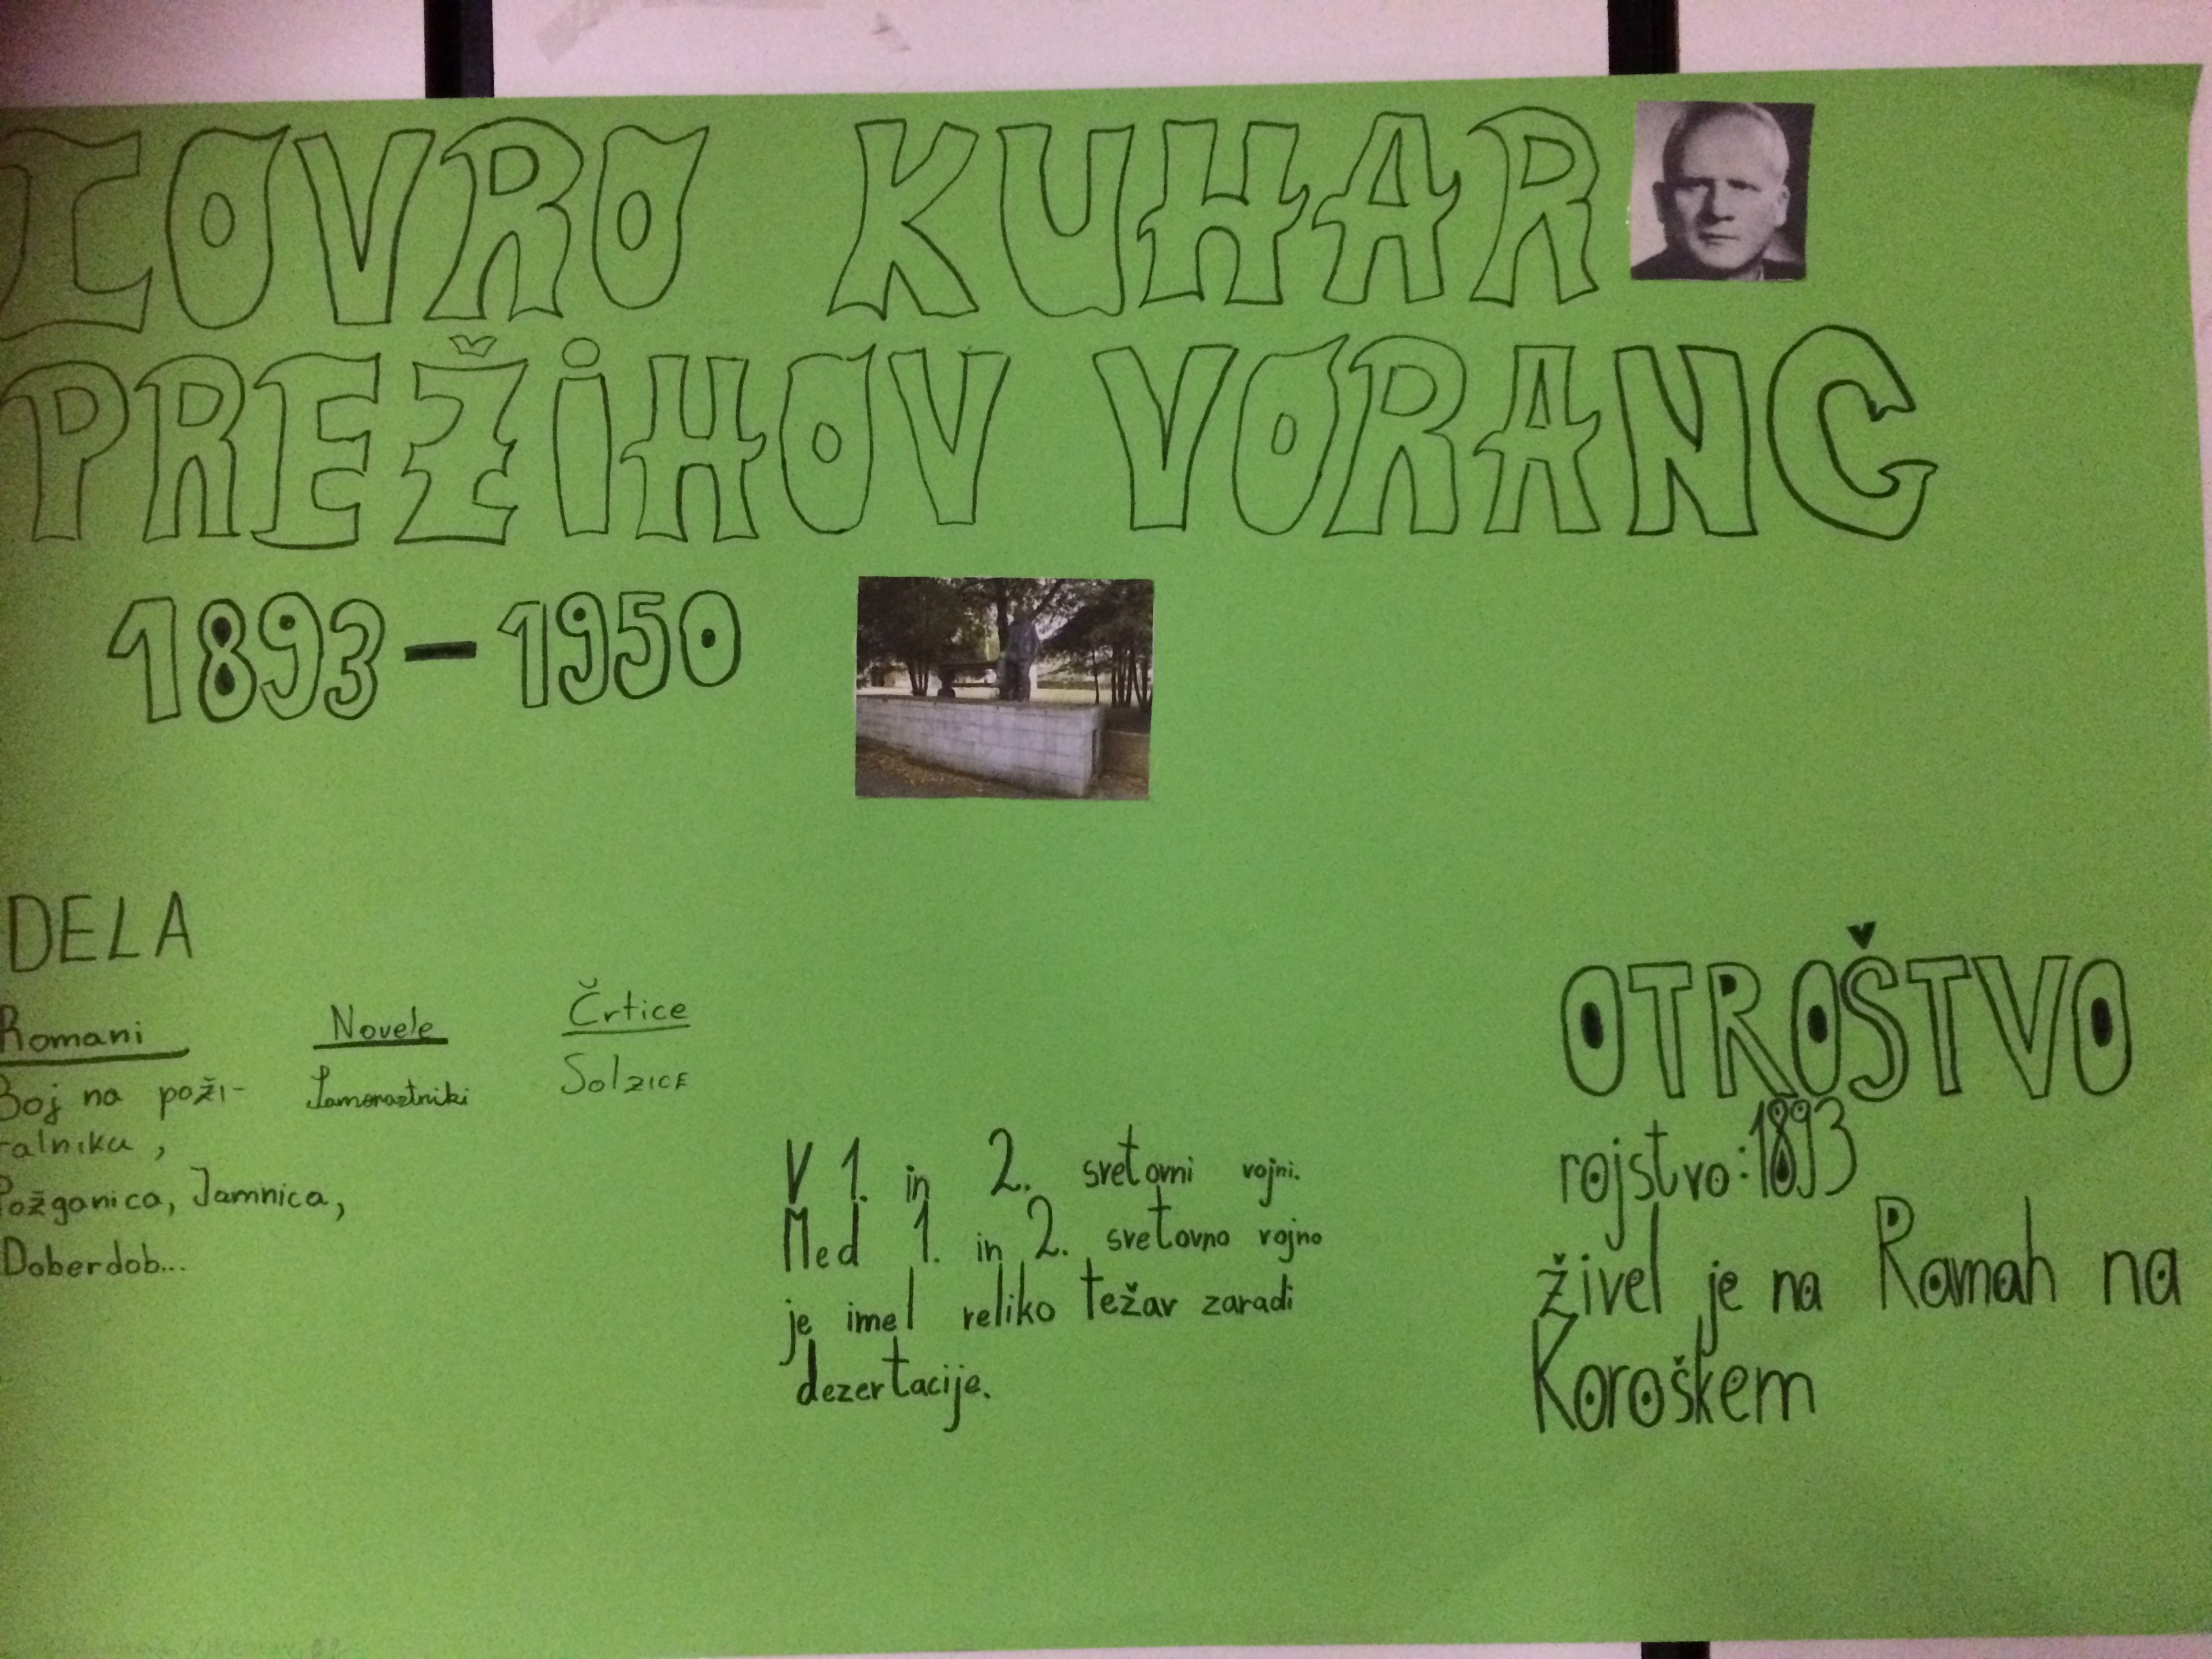 LOVRO KUHAR
PREŽIHOV VORANC
1893-1950
DELA
Romani
Boj na poži-
ralniku,
Požganica, Jamnica,
Doberdob...
Novele
Samorastniki
Črtice
Solzice
V 1. in 2. svetovni vojni.
Med 1. in 2. svetovno vojno
je imel veliko težav zaradi
dezertacije.
OTROŠTVO
rojstvo:1893
živel je na Ravnah na
Koroškem